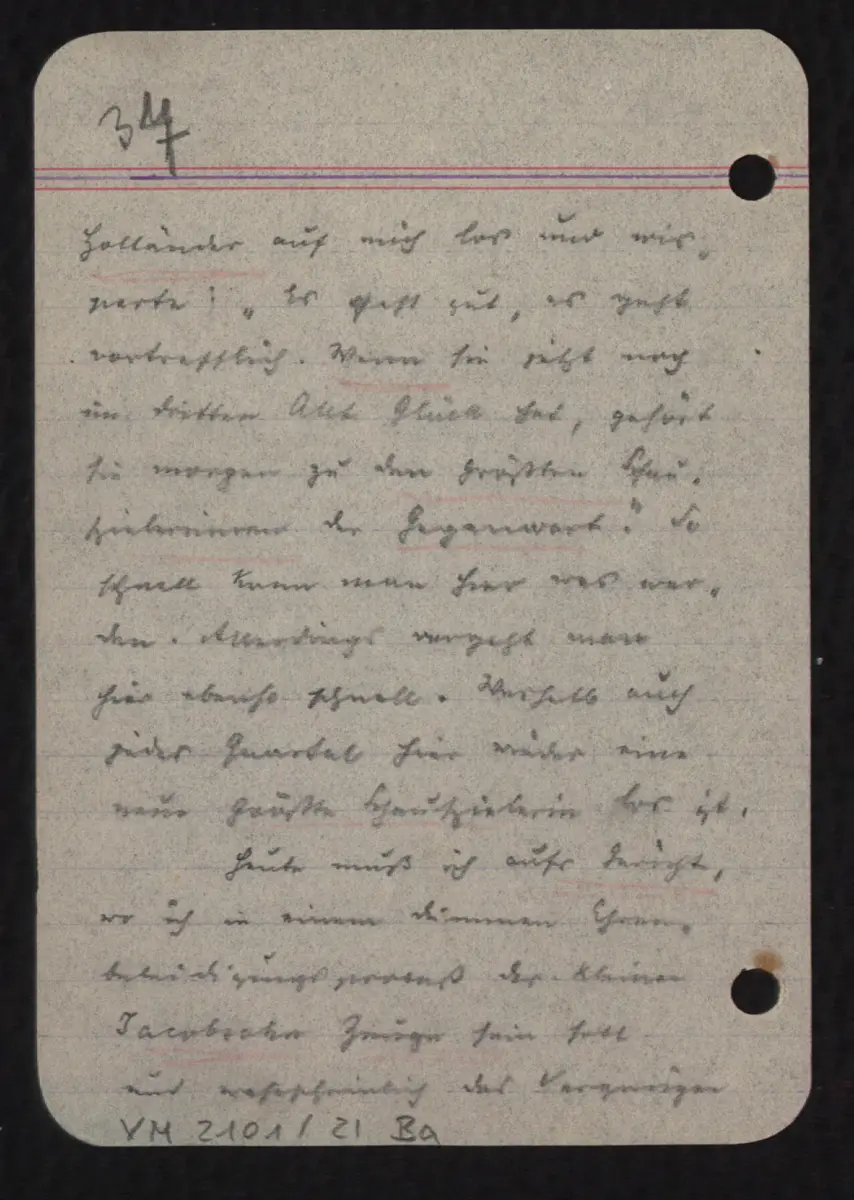 34
Holländer auf mich los und wis„
perte: „Es geht gut, es geht
vortrefflich. Wenn sie jetzt noch
im dritten Akt Glück hat, gehört
sie morgen zu den größten Schau„
spielerinnen der Gegenwart." So
schnell kann man hier was wer„
den. Allerdings vergeht man
hier ebenso schnell. Weshalb auch
jedes Quartal hier wieder eine
neue größte Schauspielerin los ist.
Heute muß ich aufs Gericht,
wo ich in einem dummen Ehren„
beleidigungsprozeß des kleinen
Jacobsohn Zeuge sein soll
und wahrscheinlich das Vergnügen
VM 2101/21 Ba